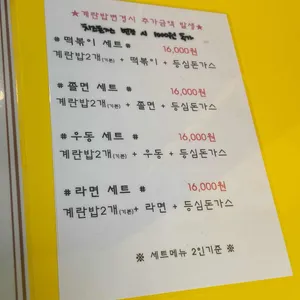 ★계란밥변경시 추가금액 발생★
치즈돈가스 변경 시 1000원 추가
# 떡볶이 세트 # 16,000원
계란밥2개(기본) + 떡볶이 + 등심돈가스
# 쫄면 세트 # 16,000원
계란밥2개(기본) + 쫄면 + 등심돈가스
# 우동 세트 # 16,000원
계란밥2개(기본) + 우동 + 등심돈가스
# 라면 세트 # 16,000원
계란밥2개(기본)+ 라면 + 등심돈가스
※ 세트메뉴 2인기준 ※